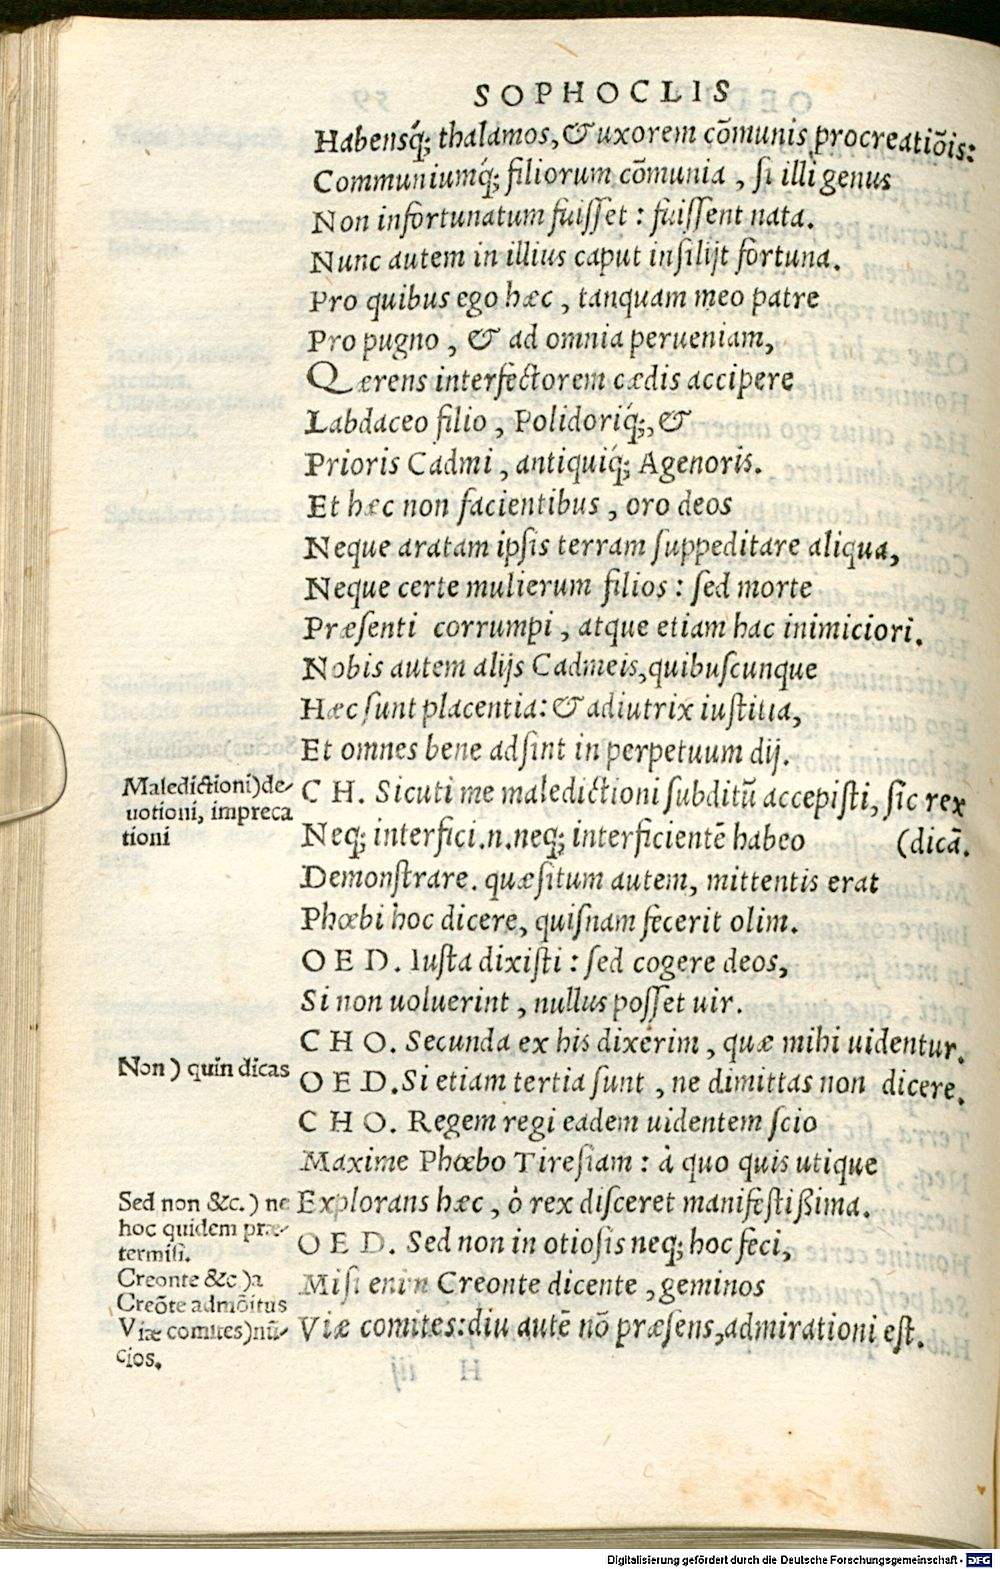 SOPHOCLIS
Habensq́; thalamos, & uxorem cõmunis procreatiõis:
Communiumq́; filiorum cõmunia, si illi genus
Non infortunatum fuisset: fuissent nata.
Nunc autem in illius caput insilijt fortuna.
Pro quibus ego hæc, tanquam meo patre
Pro pugno, & ad omnia perueniam,
Quærens interfectorem cædis accipere
Labdaceo filio, Polidoriq́;, &
Prioris Cadmi, antiquiq́; Agenoris.
Et hæc non facientibus, oro deos
Neque aratam ipsis terram suppeditare aliqua,
Neque certe mulierum filios: sed morte
Præsenti corrumpi, atque etiam hac inimiciori.
Nobis autem alijs Cadmeis, quibuscunque
Hæc sunt placentia: & adiutrix iustitia,
Et omnes bene adsint in perpetuum dij.
Maledictioni) de-
uotioni, impreca
tioni
CH. Sicuti me maledictioni subditũ accepisti, sic rex
Neq; interfici .n. neq; interficientẽ habeo (dicã.
Demonstrare. quæsitum autem, mittentis erat
Phœbi hoc dicere, quisnam fecerit olim.
OED. Iusta dixisti: sed cogere deos,
Si non uoluerint, nullus posset uir.
CHO. Secunda ex his dixerim, quæ mihi uidentur.
Non) quin dicas
OED. Si etiam tertia sunt, ne dimittas non dicere.
CHO. Regem regi eadem uidentem scio
Maxime Phœbo Tiresiam: à quo quis utique
Explorans hæc, ò rex disceret manifestißima.
Sed non &c.) ne
hoc quidem præ-
termisi.
OED. Sed non in otiosis neq; hoc feci,
Creonte &c) a
Creõte admõitus
Misi enim Creonte dicente, geminos
Viæ comites) nũ-
cios.
Viæ comites: diu autẽ nõ præsens, admirationi est.
H iij
Digitalisierung gefördert durch die Deutsche Forschungsgemeinschaft - DFG